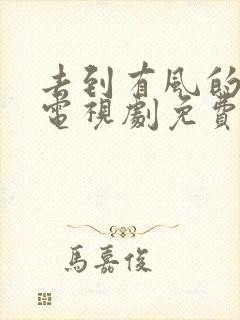 去到有風的
電視劇免費
馬嘉俊